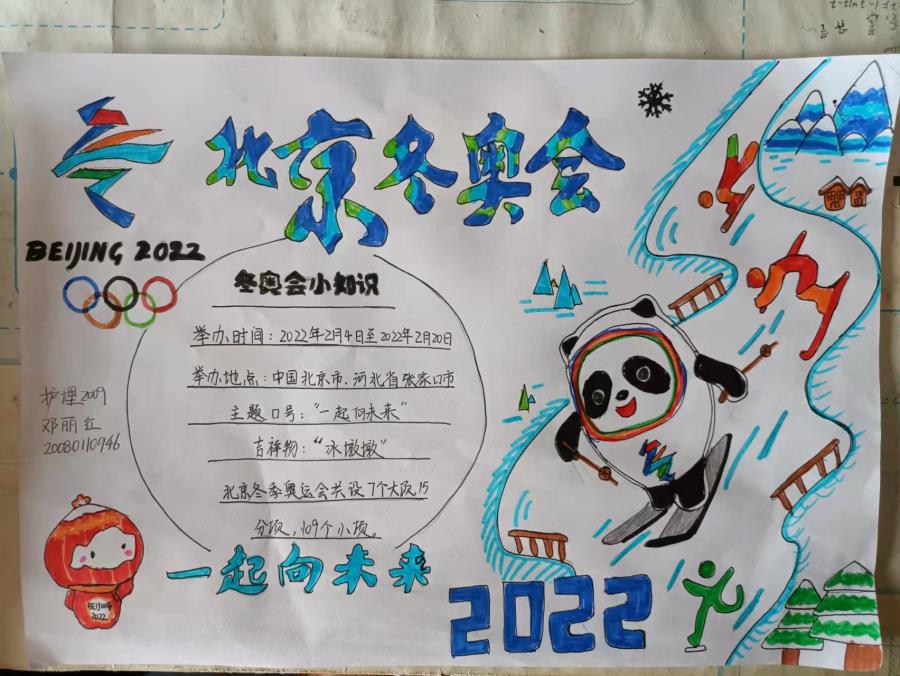 北京冬奥会
BEIJING 2022
冬奥会小知识
举办时间：2022年2月4日至2022年2月20日
举办地点：中国北京市、河北省张家口市
主题口号：“一起向未来”
吉祥物：“冰墩墩”
北京冬季奥运会共设7个大项,15
分项,109个小项。
护理2009
邓丽红
20080110946
BEIJING
2022
一起向未来
2022